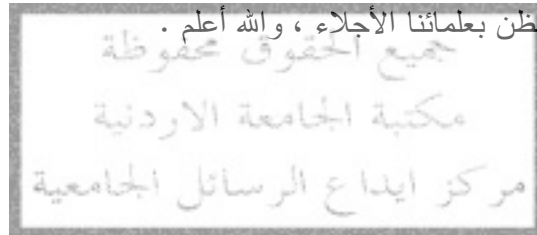 ظن بعلمائنا الأجلاء ، والله أعلم .
جميع الحقوق محفوظة
مكتبة الجامعة الاردنية
مركز ايداع الرسائل الجامعية